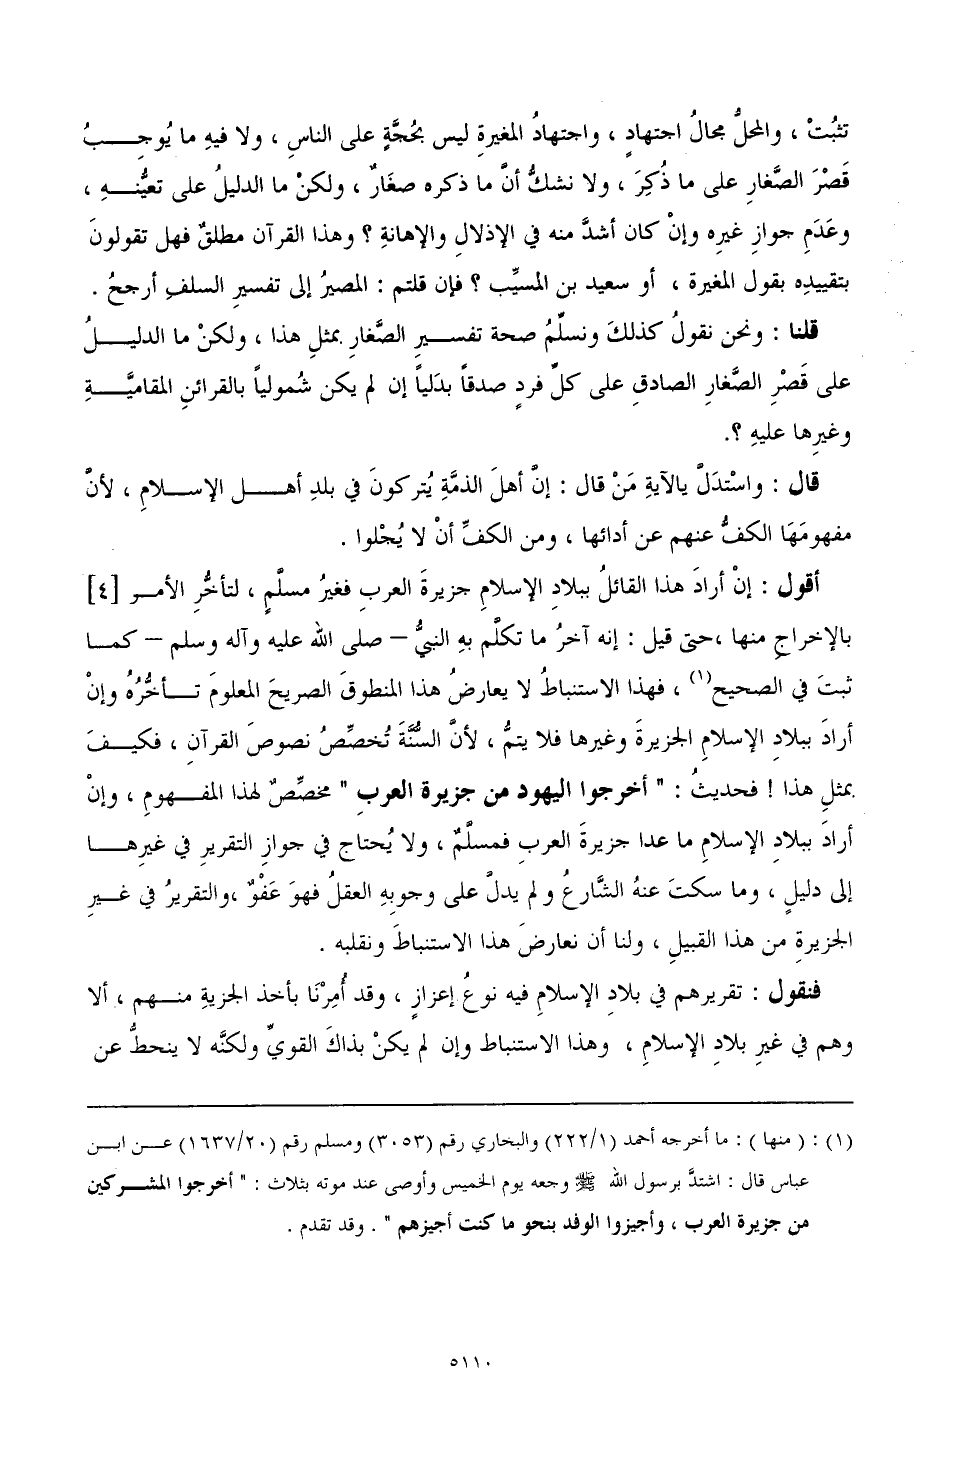 تثبُتْ ، والمحلُّ مجالُ اجتهادٍ ، واجتهادُ المغيرةِ ليس بحُجَّةٍ على الناسِ ، ولا فيهِ ما يُوجِبُ
قَصْرَ الصَّغارِ على ما ذُكِرَ ، ولا نشكُّ أنَّ ما ذكره صغَارٌ ، ولكنْ ما الدليلُ على تعيُّنهِ ،
وعَدَمِ جوازِ غيرِه وإنْ كان أشدَّ منه في الإذلالِ والإهانةِ ؟ وهذا القرآن مطلقٌ فهل تقولونَ
بتقييدِه بقول المغيرة ، أو سعيد بن المسيِّب ؟ فإن قلتم : المصيرُ إلى تفسيرِ السلفِ أرجحُ .
قلنا : ونحن نقولُ كذلكَ ونسلِّمُ صحة تفسيرِ الصَّغارِ بمثلِ هذا ، ولكنْ ما الدليلُ
على قَصْرِ الصَّغارِ الصادقِ على كلِّ فردٍ صدقاً بدَلياً إن لم يكن شُمولياً بالقرائنِ المقاميَّةِ
وغيرِها عليهِ ؟.
قال : واسْتدَلَّ بالآيةِ مَنْ قال : إنَّ أهلَ الذمَّةِ يُتركونَ في بلدِ أهلِ الإسلامِ ، لأنَّ
مفهومَهَا الكفُّ عنهم عن أدائها ، ومن الكفِّ أنْ لا يُجْلوا .
أقول : إنْ أرادَ هذا القائلُ ببلادِ الإسلامِ جزيرةَ العربِ فغيرُ مسلَّمٍ ، لتأخُّرِ الأمرِ [٤]
بالإخراجِ منها ،حتى قيل : إنه آخرُ ما تكلَّم بهِ النبيُّ – صلى الله عليه وآله وسلم – كما
ثبتَ في الصحيح(١) ، فهذا الاستنباطُ لا يعارضُ هذا المنطوقَ الصريحَ المعلومَ تأخُّرُهُ وإنْ
أرادَ ببلادِ الإسلامِ الجزيرةَ وغيرها فلا يتمُّ ، لأنَّ السُّنَّةَ تُخصِّصُ نصوصَ القرآنِ ، فكيفَ
بمثلِ هذا ! فحديثُ : " أخرجوا اليهود من جزيرة العربِ " مخصِّصٌ لهذا المفهومِ ، وإنْ
أرادَ ببلادِ الإسلامِ ما عدا جزيرةَ العربِ فمسلَّمٌ ، ولا يُحتاج في جوازِ التقريرِ في غيرِها
إلى دليلٍ ، وما سكتَ عنهُ الشَّارعُ ولم يدلَّ على وجوبِهِ العقلُ فهوَ عَفْوٌ ،والتقريرُ في غيرِ
الجزيرةِ من هذا القبيلِ ، ولنا أن نعارضَ هذا الاستنباطَ ونقلبه .
فنقول : تقريرهم في بلادِ الإسلامِ فيه نوعُ إعزازٍ ، وقد أُمِرْنَا بأخذِ الجزيةِ منهم ، ألا
وهم في غيرِ بلادِ الإسلامِ ، وهذا الاستنباط وإن لم يكنْ بذاكَ القويِّ ولكنَّه لا ينحطُّ عن
(١) : ( منها ) : ما أخرجه أحمد (٢٢٢/١) والبخاري رقم (٣٠٥٣) ومسلم رقم (١٦٣٧/٢٠) عن ابن
عباس قال : اشتدَّ برسول الله ﷺ وجعه يوم الخميس وأوصى عند موته بثلاث : " أخرجوا المشركين
من جزيرة العرب ، وأجيزوا الوفد بنحو ما كنت أجيزهم " . وقد تقدم .
٥١١٠